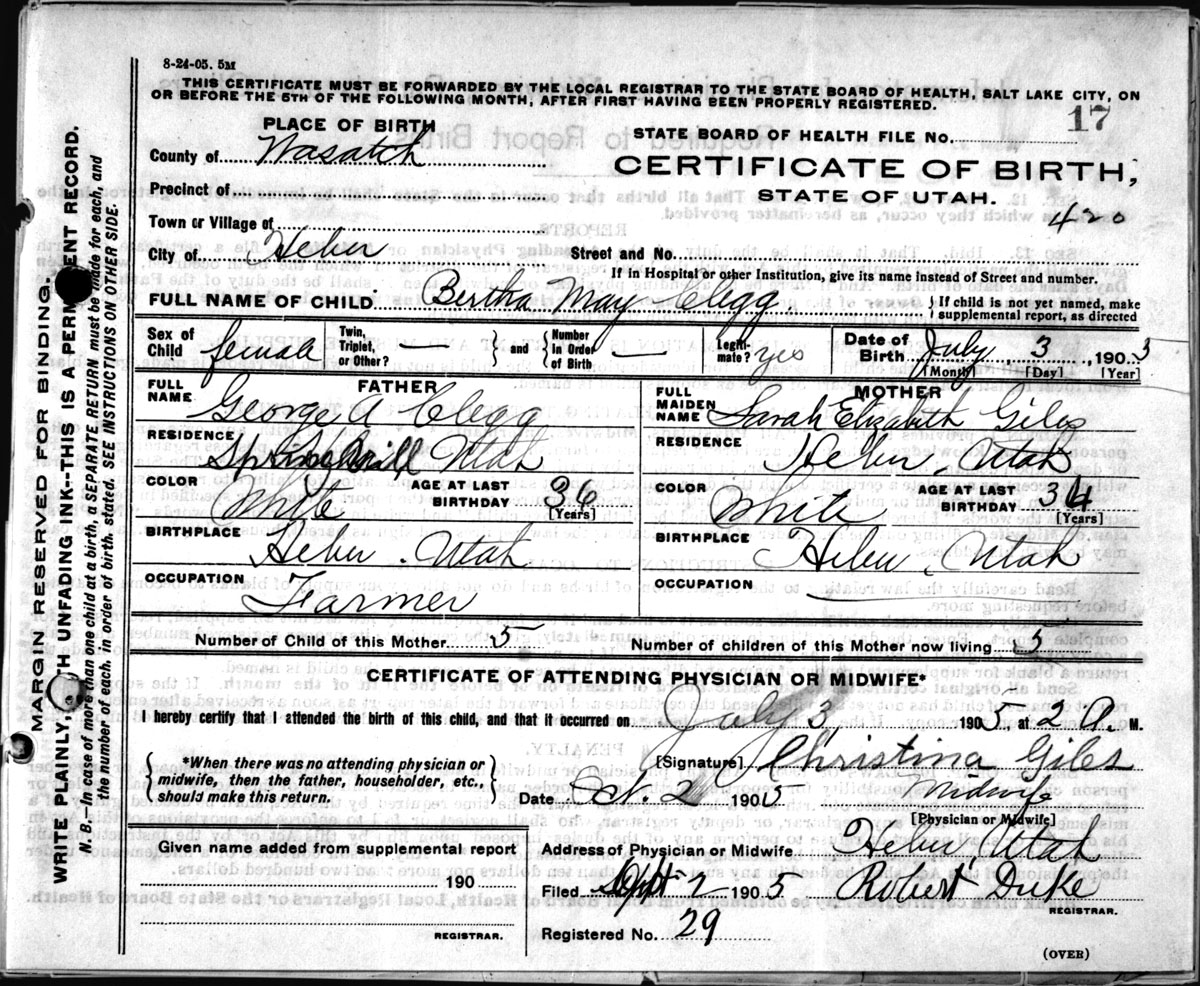 8-24-05. 5M
THIS CERTIFICATE MUST BE FORWARDED BY THE LOCAL REGISTRAR TO THE STATE BOARD OF HEALTH, SALT LAKE CITY, ON
OR BEFORE THE 5TH OF THE FOLLOWING MONTH, AFTER FIRST HAVING BEEN PROPERLY REGISTERED.
PLACE OF BIRTH
STATE BOARD OF HEALTH FILE No. 17
County of Wasatch
CERTIFICATE OF BIRTH,
Precinct of
STATE OF UTAH.
Town or Village of
420
City of Heber Street and No.
If in Hospital or other Institution, give its name instead of Street and number.
FULL NAME OF CHILD. Bertha May Clegg { If child is not yet named, make supplemental report, as directed
Sex of Child female Twin, Triplet, or Other? } and { Number in Order of Birth — Legiti-mate? yes Date of Birth July 3 1903
[Month] [Day] [Year]
FATHER
FULL NAME George A Clegg
RESIDENCE Utah
COLOR White AGE AT LAST BIRTHDAY 36 [Years]
BIRTHPLACE Heber. Utah
OCCUPATION Farmer
MOTHER
FULL MAIDEN NAME Sarah Elizabeth Giles
RESIDENCE Heber. Utah
COLOR White AGE AT LAST BIRTHDAY 34 [Years]
BIRTHPLACE Heber. Utah
OCCUPATION
Number of Child of this Mother 5 Number of children of this Mother now living 5
CERTIFICATE OF ATTENDING PHYSICIAN OR MIDWIFE*
I hereby certify that I attended the birth of this child, and that it occurred on July 3, 1905, at 2 A. M.
{ *When there was no attending physician or midwife, then the father, householder, etc., should make this return. }
[Signature] Christina Giles
Date 2 1905 Midwife
[Physician or Midwife]
Given name added from supplemental report
190
REGISTRAR.
Address of Physician or Midwife Heber Utah
Filed Sept 2 1905 Robert Duke
REGISTRAR.
Registered No. 29
(OVER)
MARGIN RESERVED FOR BINDING.
WRITE PLAINLY, WITH UNFADING INK--THIS IS A PERMANENT RECORD.
N. B.—In case of more than one child at a birth, a SEPARATE RETURN must be made for each, and
the number of each, in order of birth, stated. SEE INSTRUCTIONS ON OTHER SIDE.